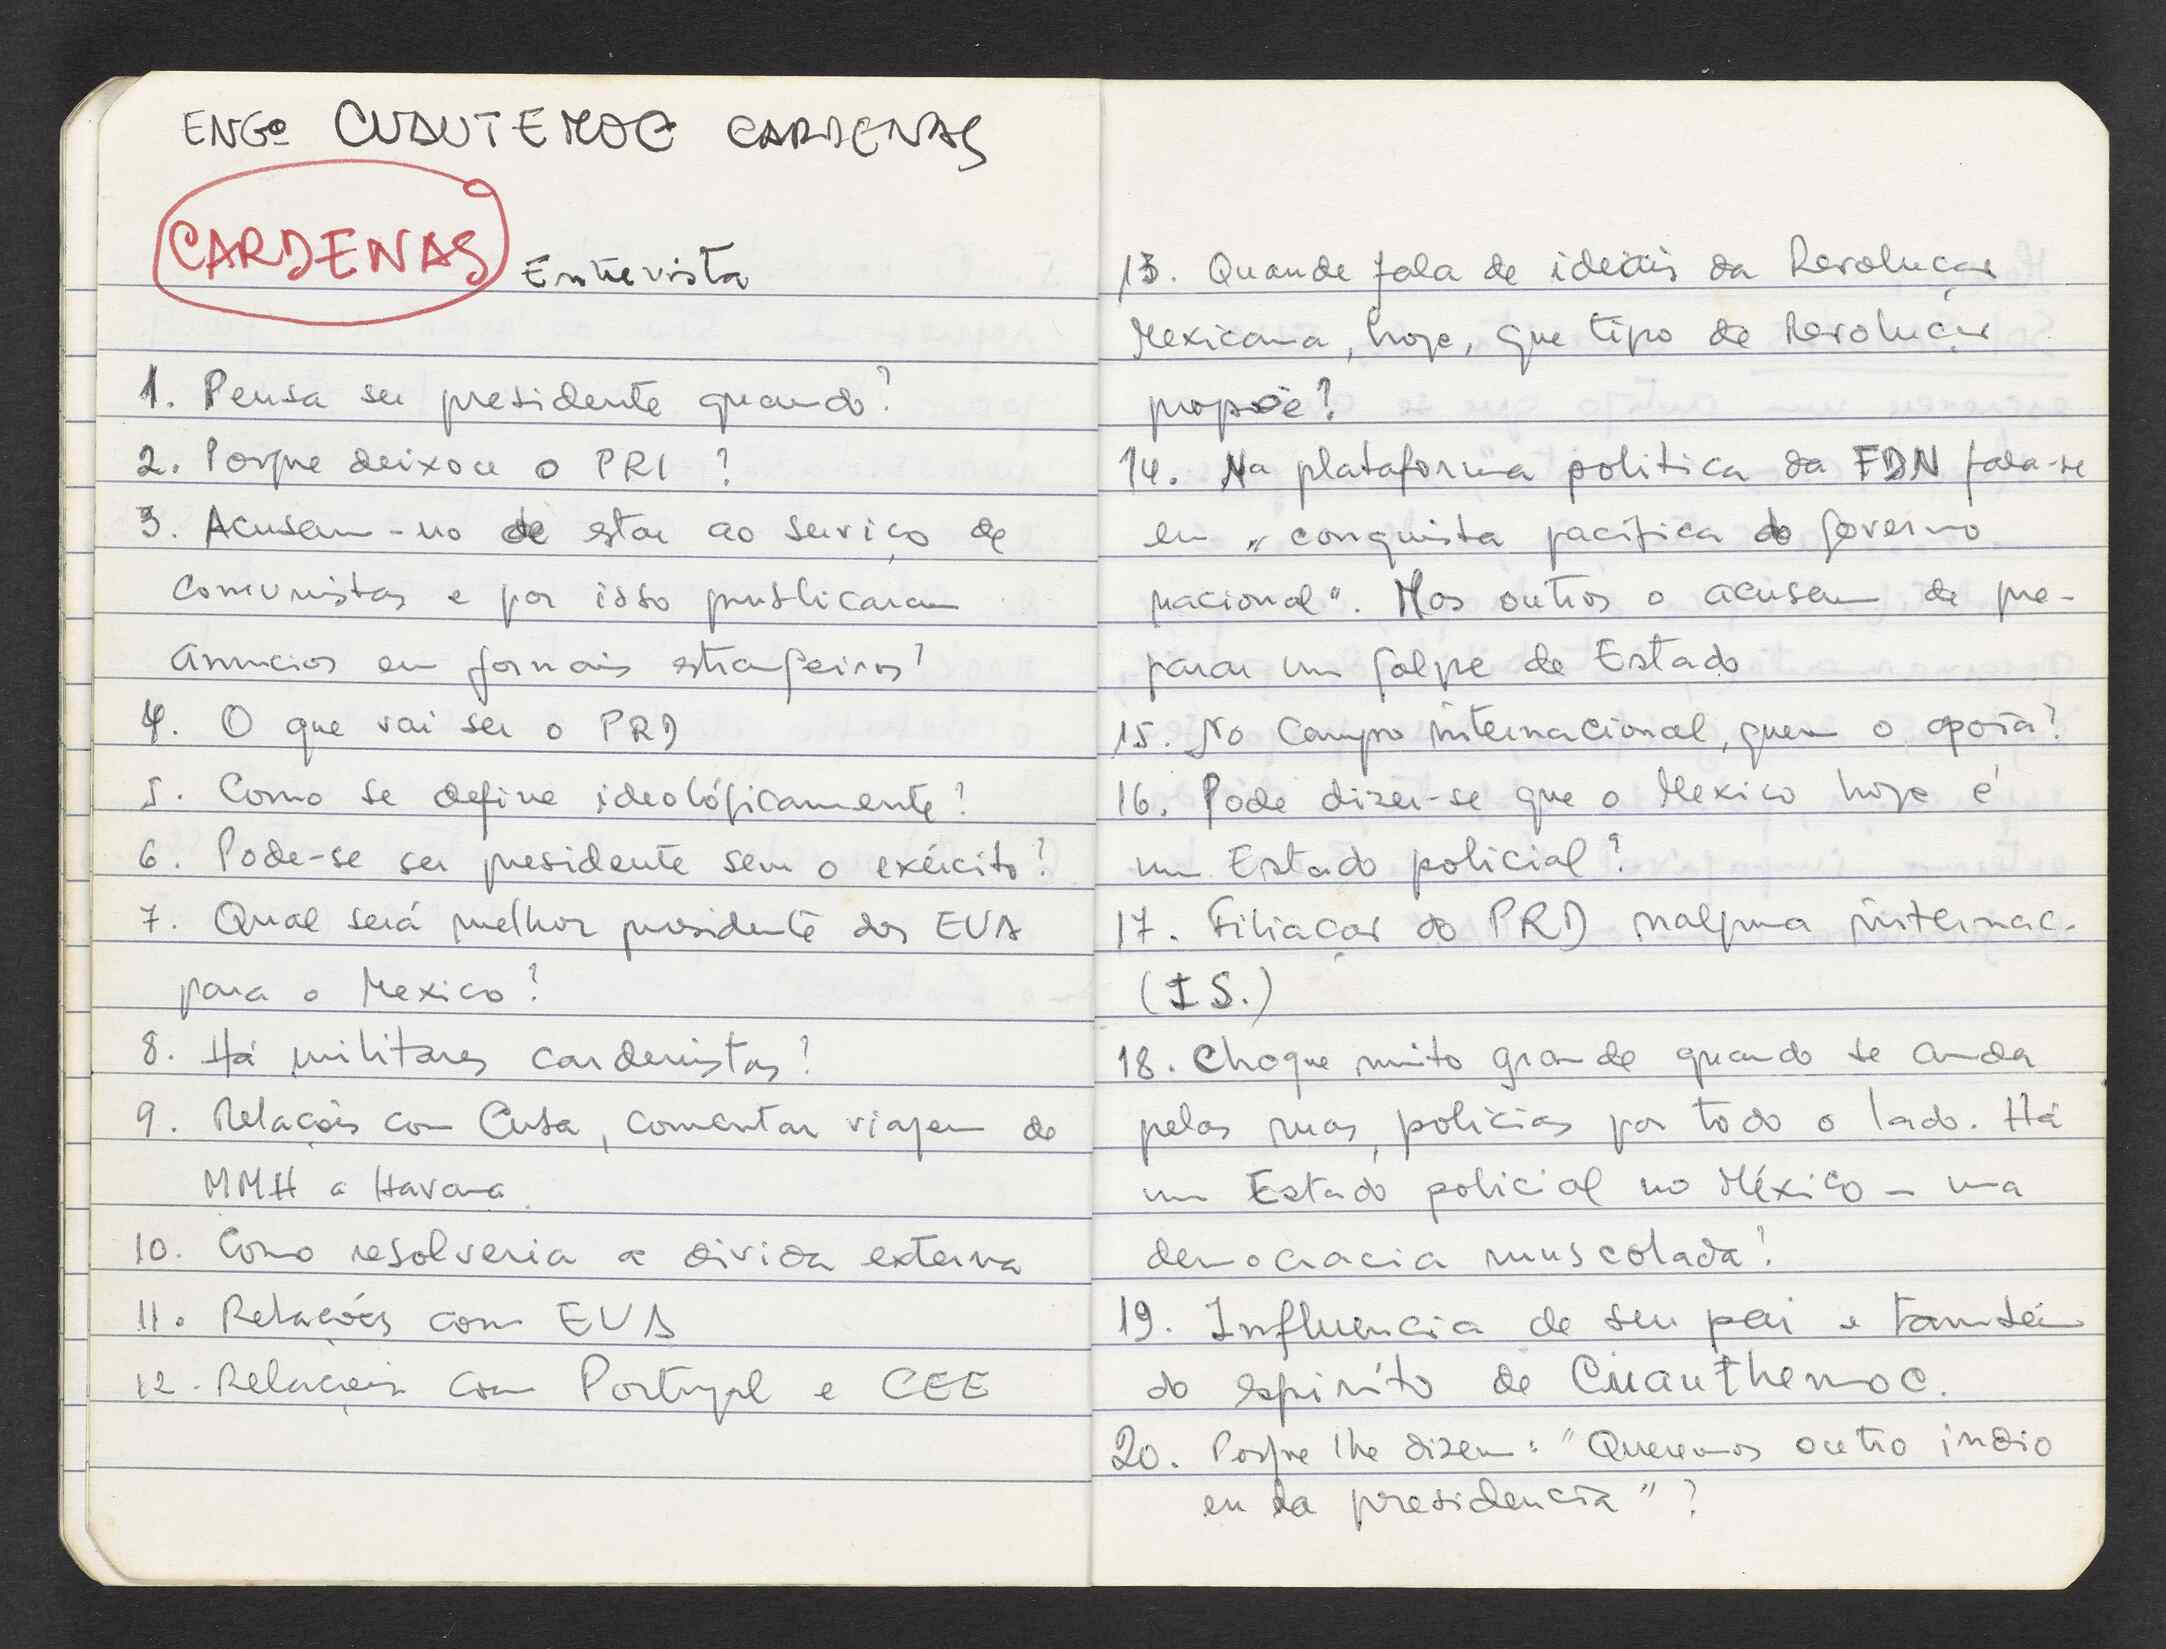 ENGº CUAUTEMOC CARDENAS
CARDENAS Entrevista
1. Pensa ser presidente quando?
2. Porque deixou o PRI ?
3. Acusam-no de estar ao serviço de
comunistas e por isso publicaram
anuncios em jornais estrangeiros?
4. O que vai ser o PRD
5. Como se define ideológicamente?
6. Pode-se ser presidente sem o exército?
7. Qual será melhor presidente dos EUA
para o Mexico?
8. Há militares cardenistas?
9. Relações com Cuba, comentar viagem de
MMH a Havana
10. Como resolveria a divida externa
11. Relações com EUA
12. Relações com Portugal e CEE
13. Quando fala de ideais da Revolução
Mexicana, hoje, que tipo de Revolução
propõe?
14. Na plataforma politica da FDN fala-se
em "conquista pacífica do governo
nacional". Mas outros o acusam de pre-
parar um golpe de Estado
15. No campo internacional, quem o apoia?
16. Pode dizer-se que o Mexico hoje é
um Estado policial?
17. Filiação do PRD nalguma internac.
(IS.)
18. Choque muito grande quando se anda
pelas ruas, policias por todo o lado. Há
um Estado policial no México – uma
democracia muscolada?
19. Influencia de seu pai e também
do espirito de Cuauthemoc.
20. Porque lhe dizem: "Queremos outro indio
en la presidencia" ?